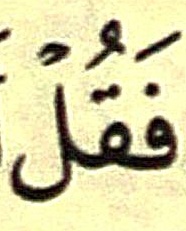 فَقُلْ